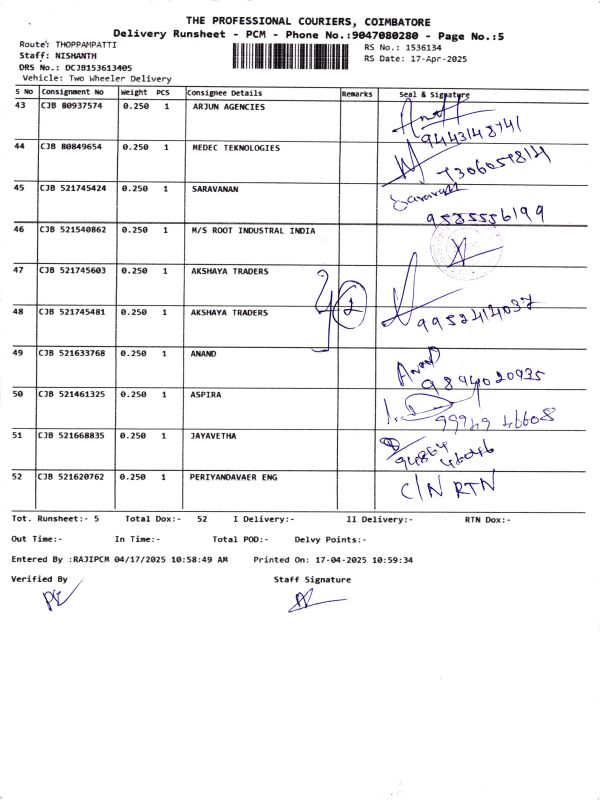 THE PROFESSIONAL COURIERS, COIMBATORE
Delivery Runsheet - PCM - Phone No.:9047080280 - Page No.:5
Route: THOPPAMPATTI
RS No.: 1536134
Staff: NISHANTH
RS Date: 17-Apr-2025
DRS No.: DCJB153613405
Vehicle: Two Wheeler Delivery
S No Consignment No Weight PCS Consignee Details Remarks Seal & Signature
43 CJB 80937574 0.250 1 ARJUN AGENCIES
9443148741
44 CJB 80849654 0.250 1 MEDEC TEKNOLOGIES
7306059814
45 CJB 521745424 0.250 1 SARAVANAN Saravanan
9585556199
46 CJB 521540862 0.250 1 M/S ROOT INDUSTRAL INDIA
47 CJB 521745603 0.250 1 AKSHAYA TRADERS
2
48 CJB 521745481 0.250 1 AKSHAYA TRADERS 9952414037
49 CJB 521633768 0.250 1 ANAND Anand
9894020935
50 CJB 521461325 0.250 1 ASPIRA
99949 46608
51 CJB 521668835 0.250 1 JAYAVETHA
94864
46046
52 CJB 521620762 0.250 1 PERIYANDAVAER ENG C/N RTN
Tot. Runsheet:- 5 Total Dox:- 52 I Delivery:- II Delivery:- RTN Dox:-
Out Time:- In Time:- Total POD:- Delvy Points:-
Entered By :RAJIPCM 04/17/2025 10:58:49 AM Printed On: 17-04-2025 10:59:34
Verified By Staff Signature